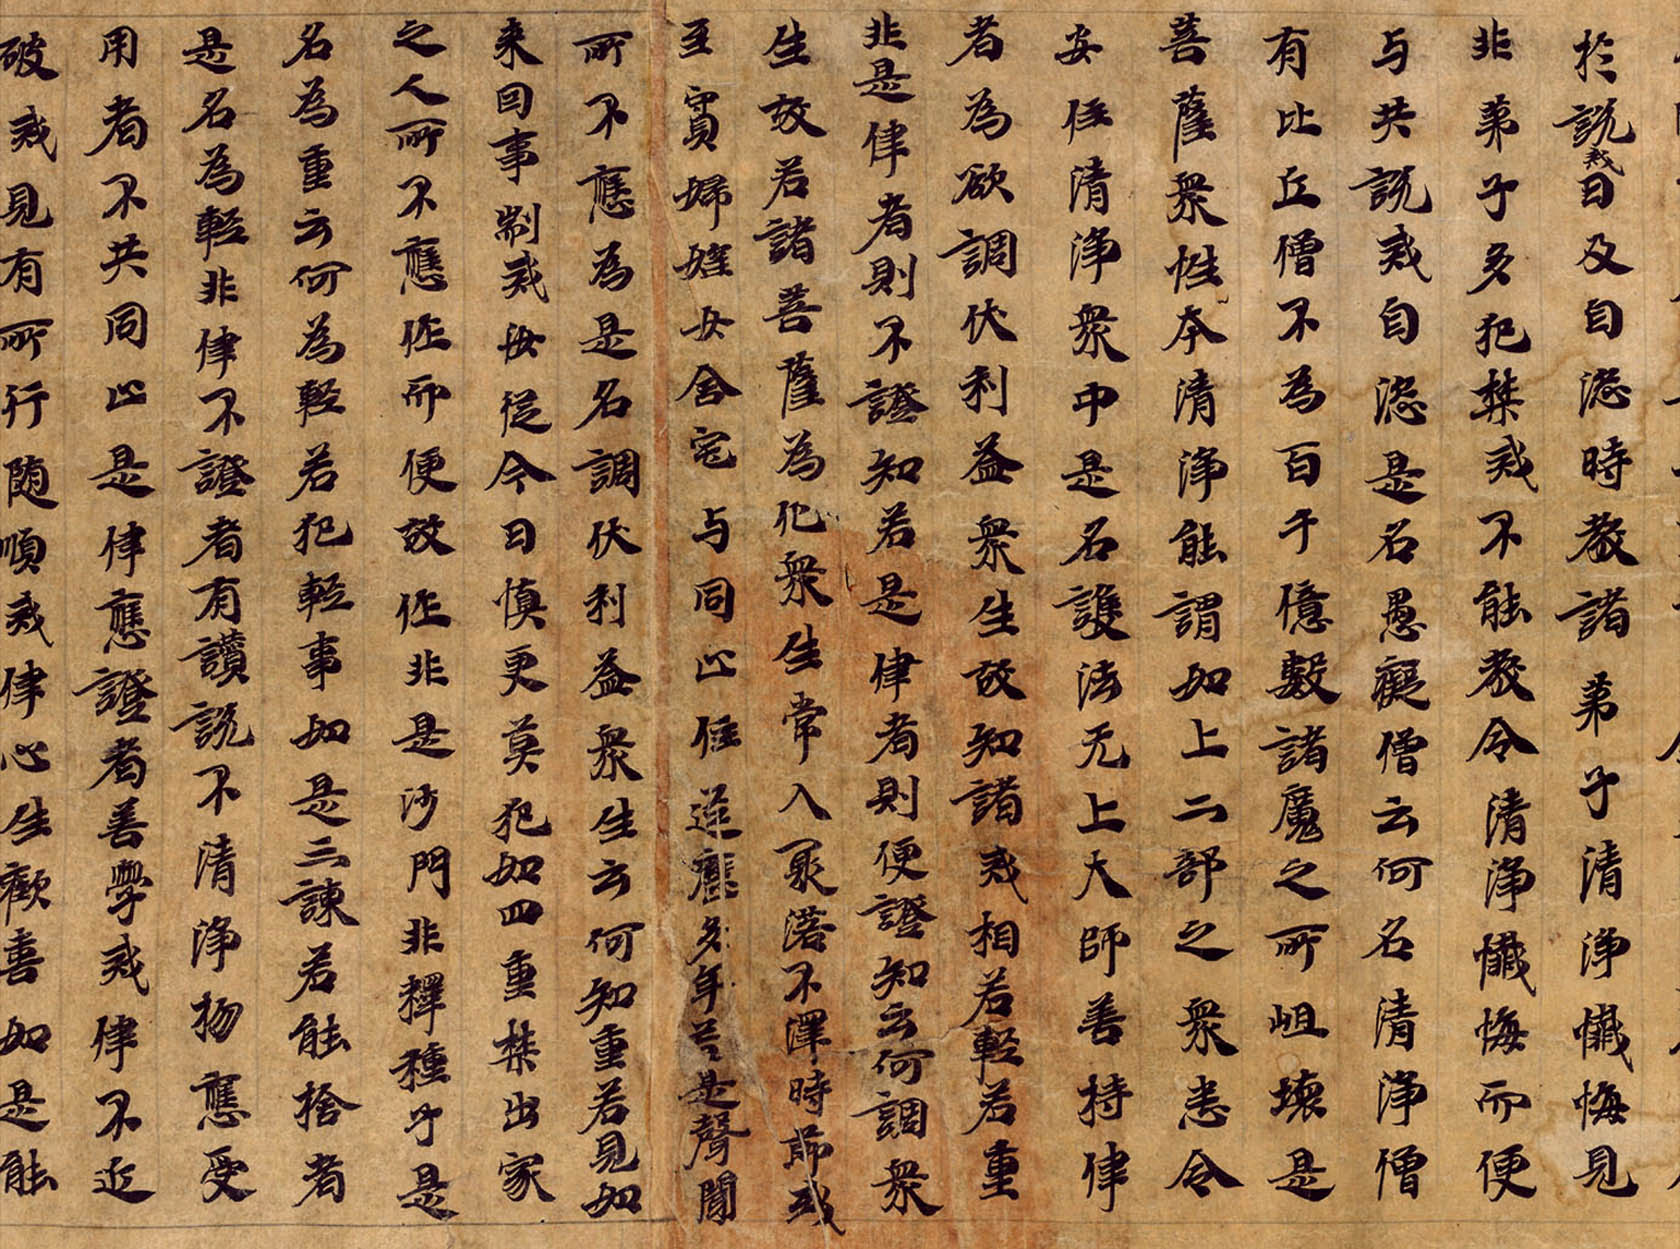 於說戒日及自恣時教諸弟子清淨懺悔見
非弟子多犯禁戒不能教令清淨懺悔而便
与共說戒自恣是名愚癡僧云何名清淨僧
有比丘僧不為百千億數諸魔之所岨壞是
菩薩衆性本清淨能謂如上二部之衆悉令
安住清淨衆中是名護法无上大師善持律
者為欲調伏利益衆生故知諸戒相若輕若重
非是律者則不證知若是律者則便證知云何調衆
生故若諸菩薩為化衆生常入聚落不澤時節或
至寡婦婬女舍宅与同止住逕歷多年若是聲聞
所不應為是名調伏利益衆生云何知重若見如
来因事制戒汝從今日慎更莫犯如四重禁出家
之人所不應作而便故作非是沙門非釋種子是
名為重云何為輕若犯輕事如是三諫若能捨者
是名為輕非律不證者有讚說不清淨物應受
用者不共同止是律應證者善學戒律不近
破戒見有所行随順戒律心生歡喜如是能